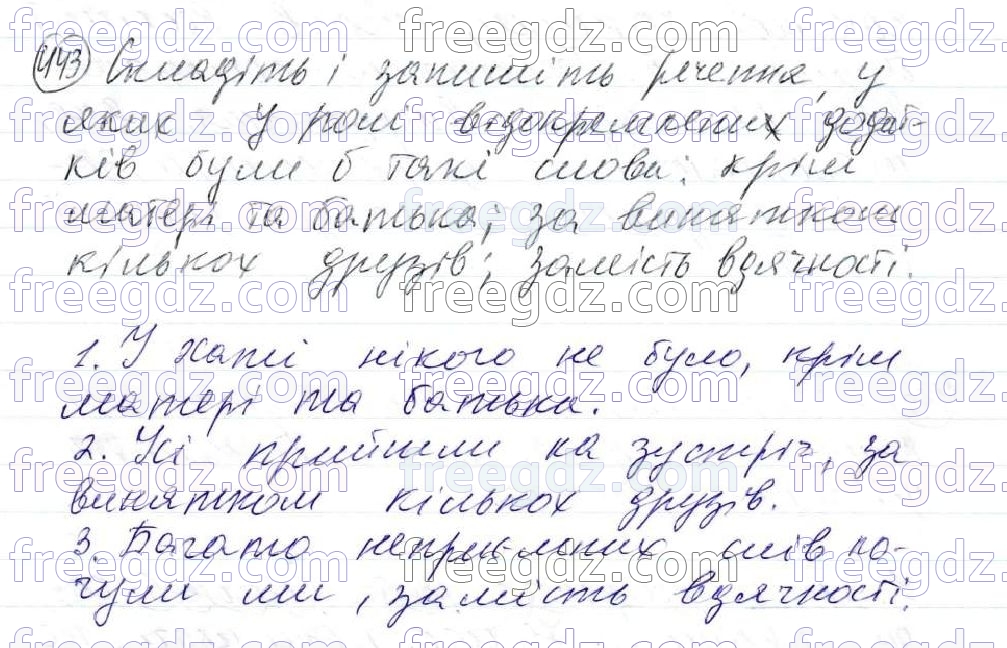 443 Складіть і запишіть речення, у
яких у ролі відокремлених додат-
ків були б такі слова: крім
матері та батька; за винятком
кількох друзів; замість вдячності.
1. У хаті нікого не було, крім
матері та батька.
2. Усі прийшли на зустріч, за
винятком кількох друзів.
3. Багато неприємних слів по-
чули ми, замість вдячності.
freegdz.com